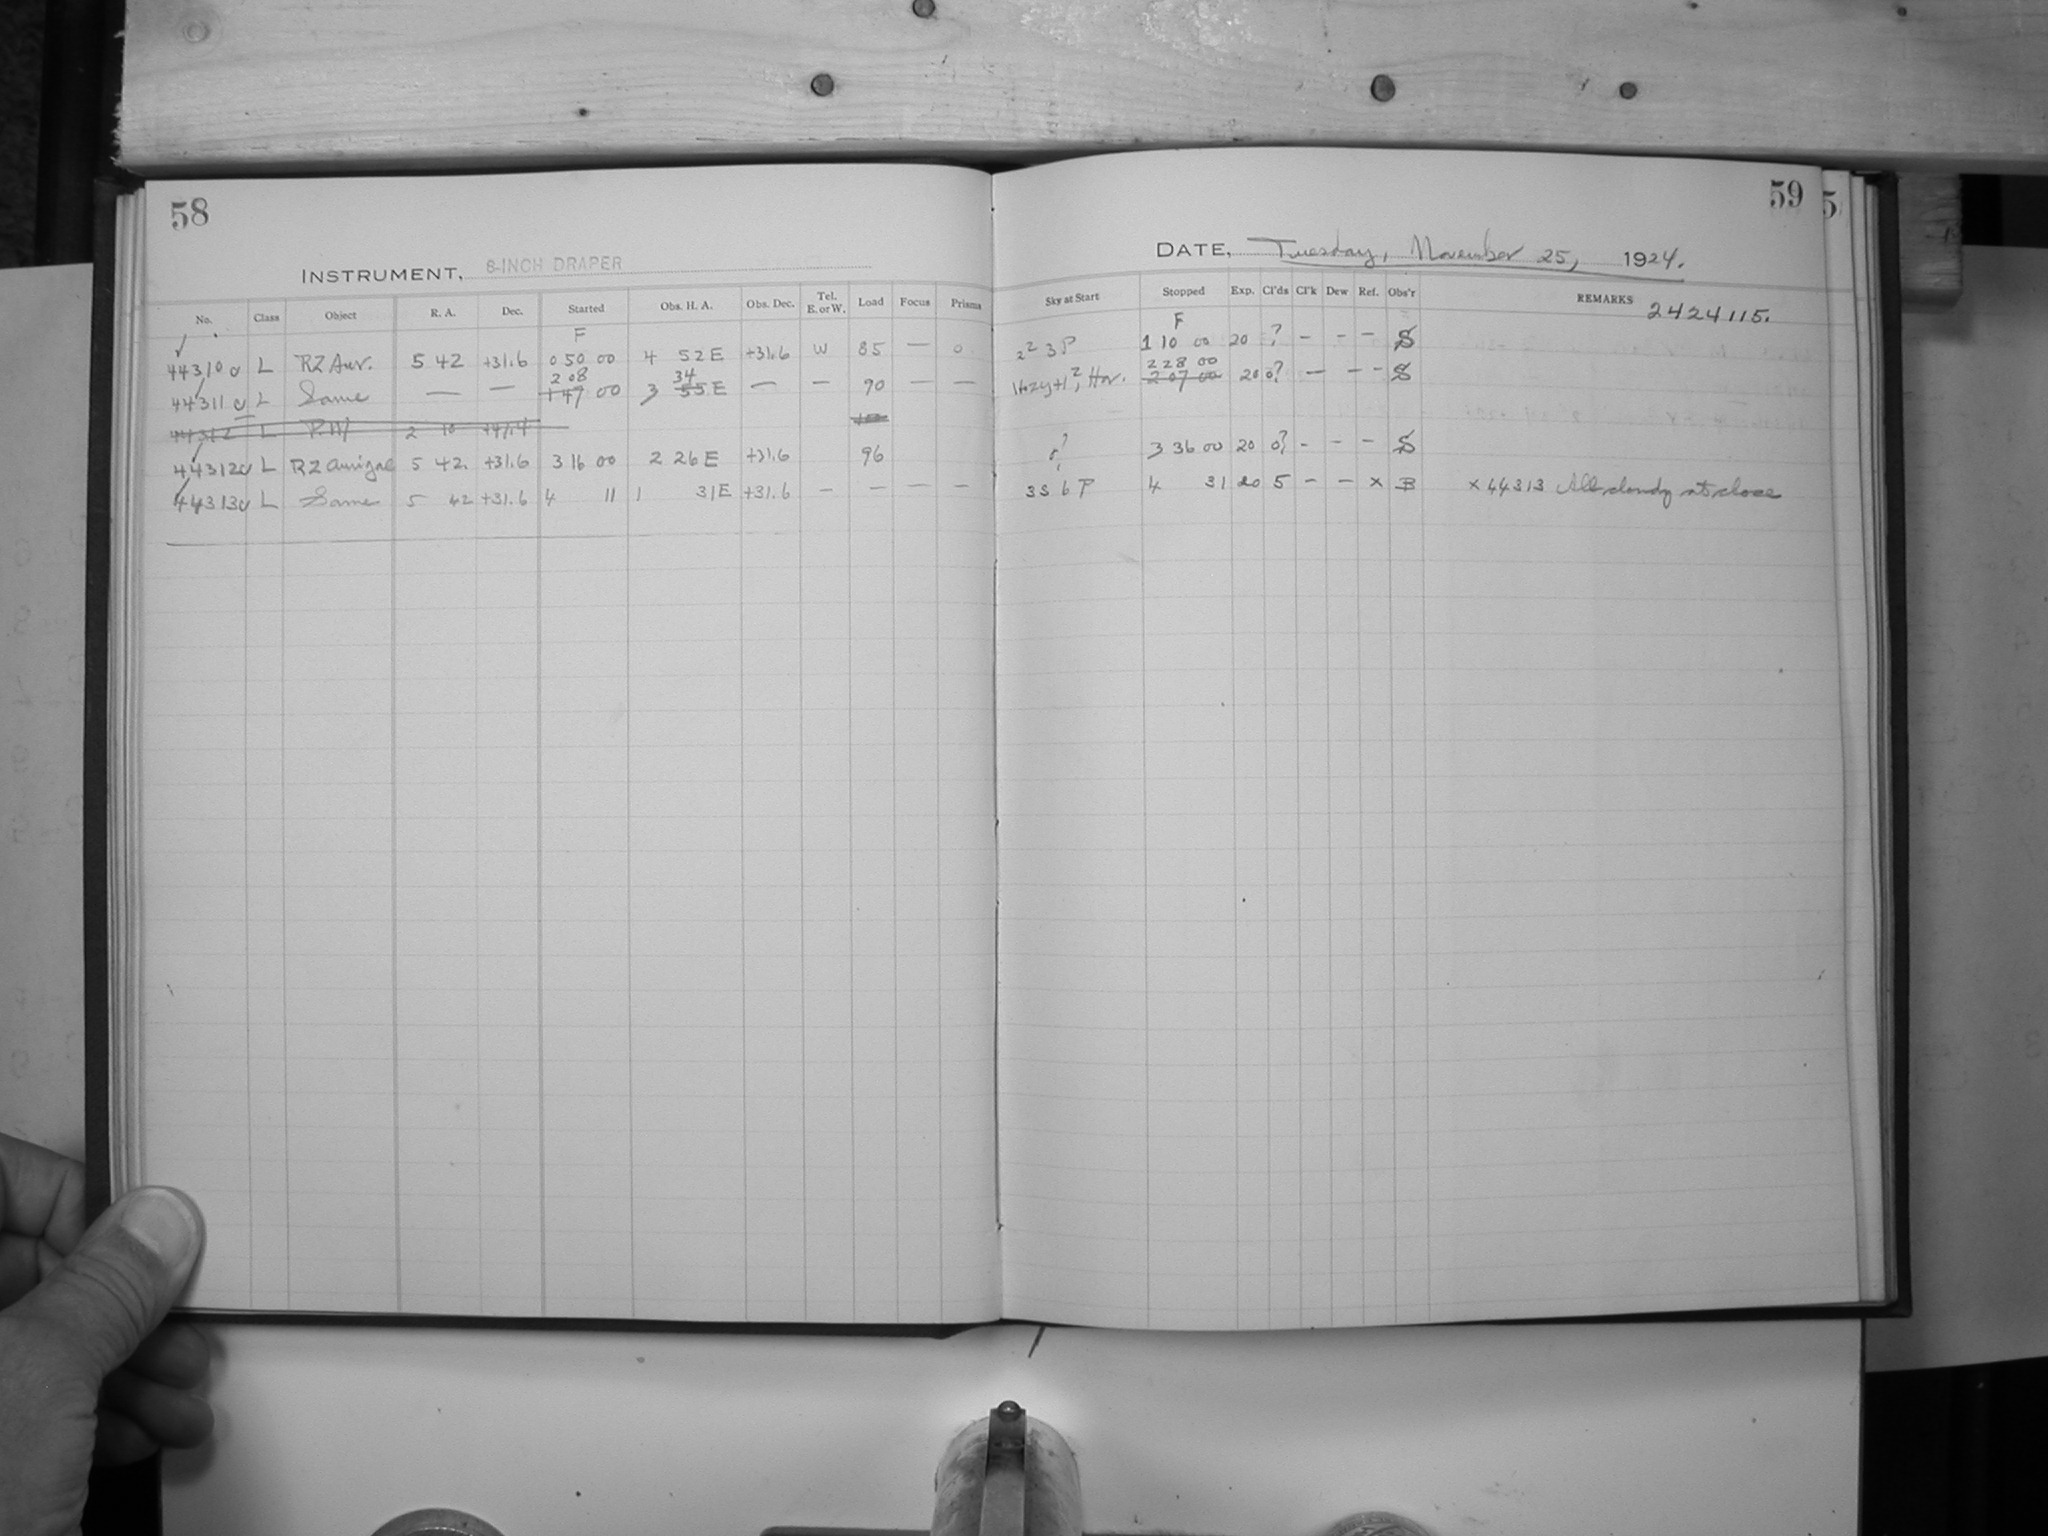 58
INSTRUMENT, 8-INCH DRAPER
No. Class Object R. A. Dec. Started Obs. H. A. Obs. Dec. Tel. E. or W. Load Focus Prisms
F
44310 L RZ Aur. 5 42 +31.6 0 50 00 4 52 E +31.6 W 85 — 0
2 08 34
44311 L Same — — 1 47 00 3 55 E — — 90 — —
44312 L 2 10 +41.4
44312 L RZ Aurigae 5 42 +31.6 3 16 00 2 26 E +31.6 96
44313 L Same 5 42 +31.6 4 11 1 31 E +31.6 — — — —
59
DATE, Tuesday, November 25, 1924.
Sky at Start Stopped Exp. Cl'ds Cl'k Dew Ref. Obs'r REMARKS
2424115.
F
2² 3 P 1 10 00 20 ? – – – S
2 28 00
Hazy +1², Hor. 2 07 00 20 0? — – – S
? 3 36 00 20 0? – – – S
3S 6 P 4 31 20 5 – – x B x 44313 All cloudy at close